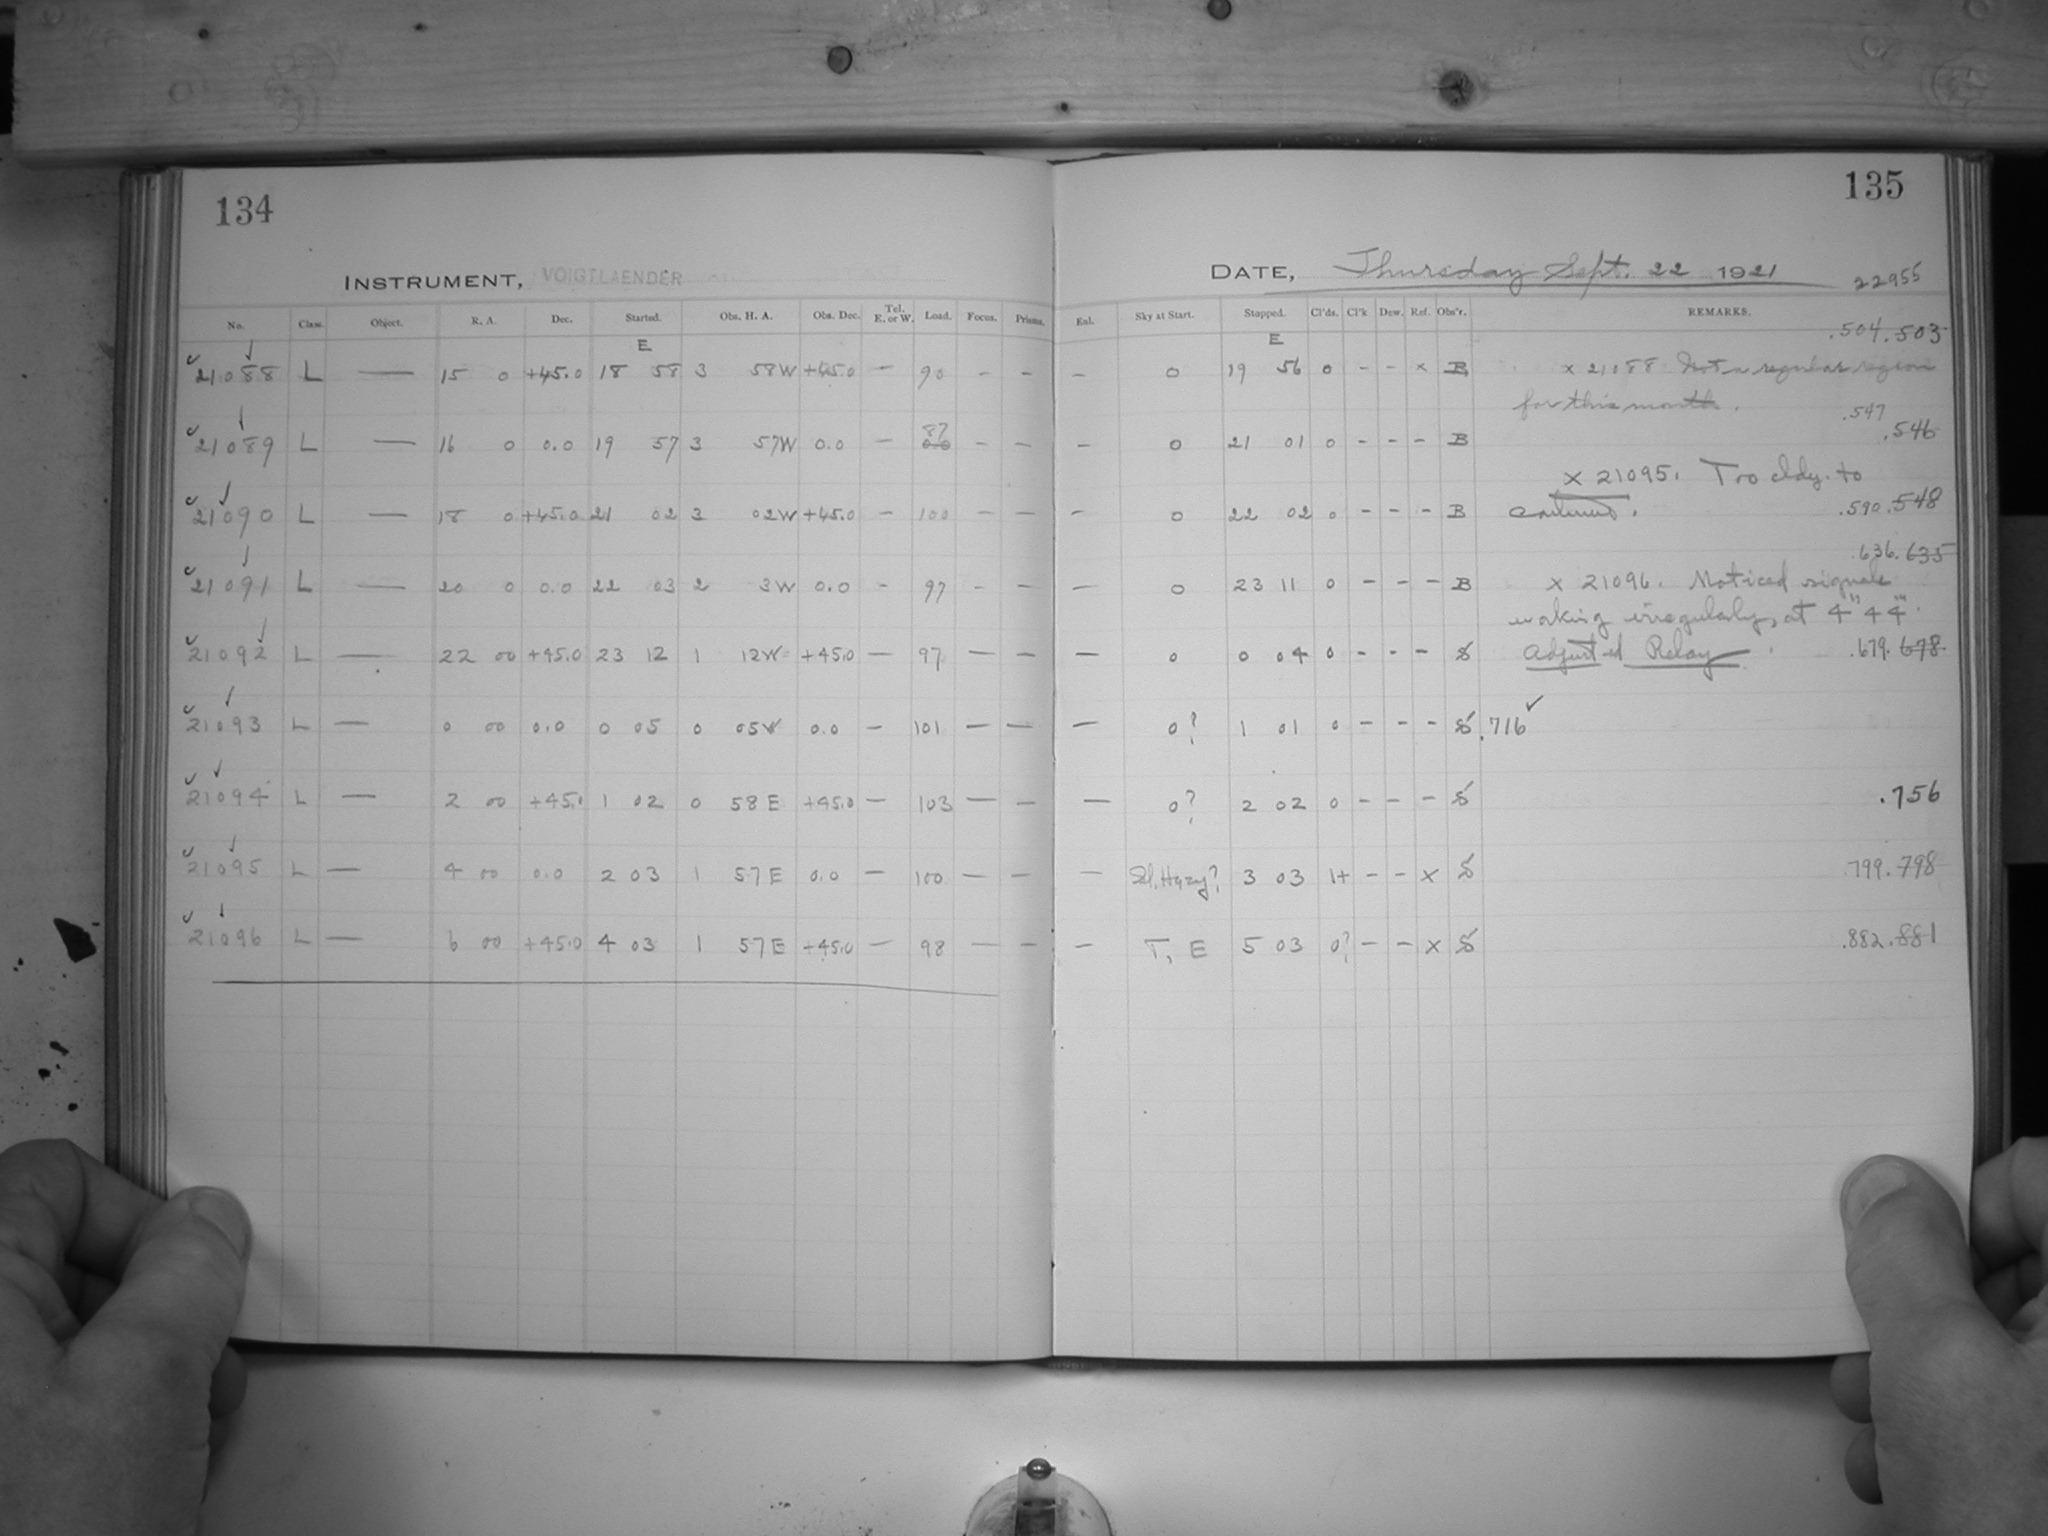 134
INSTRUMENT, VOIGTLAENDER
No. Class. Object. R. A. Dec. Started. Obs. H. A. Obs. Dec. Tel. E. or W. Load. Focus. Prisms.
E
21088 L — 15 0 +45.0 18 58 3 58W +45.0 — 90 - -
21089 L — 16 0 0.0 19 57 3 57W 0.0 — 87 - —
21090 L — 18 0 +45.0 21 02 3 02W +45.0 - 100 - -
21091 L — 20 0 0.0 22 03 2 3W 0.0 - 97 - —
21092 L — 22 00 +45.0 23 12 1 12W +45.0 — 97 — —
21093 L — 0 00 0.0 0 05 0 05W 0.0 — 101 — —
21094 L — 2 00 +45.0 1 02 0 58E +45.0 — 103 — —
21095 L — 4 00 0.0 2 03 1 57E 0.0 — 100 — —
21096 L — 6 00 +45.0 4 03 1 57E +45.0 — 98 — —
135
DATE, Thursday Sept. 22 1921
22955
Enl. Sky at Start. Stopped. Cl'ds. Cl'k Dew. Ref. Obs'r. REMARKS.
E
.504 .503
- 0 19 56 0 - - x B x 21088 Not a regular region
for this month.
.547
- 0 21 01 0 - - - B .546
x 21095. Too cldy. to
- 0 22 02 0 - - - B continue. .590 .548
.636 .635
— 0 23 11 0 - - - B x 21096. Noticed signals
working irregularly, at 4h 44m.
— 0 0 04 0 - - - S Adjusted Relay .679 .678
— 0? 1 01 0 - - - S .716 ✓
— 0? 2 02 0 - - - S .756
— Sl. Hazy? 3 03 1+ - - x S .799 .798
— T, E 5 03 0? - - x S .882 .881